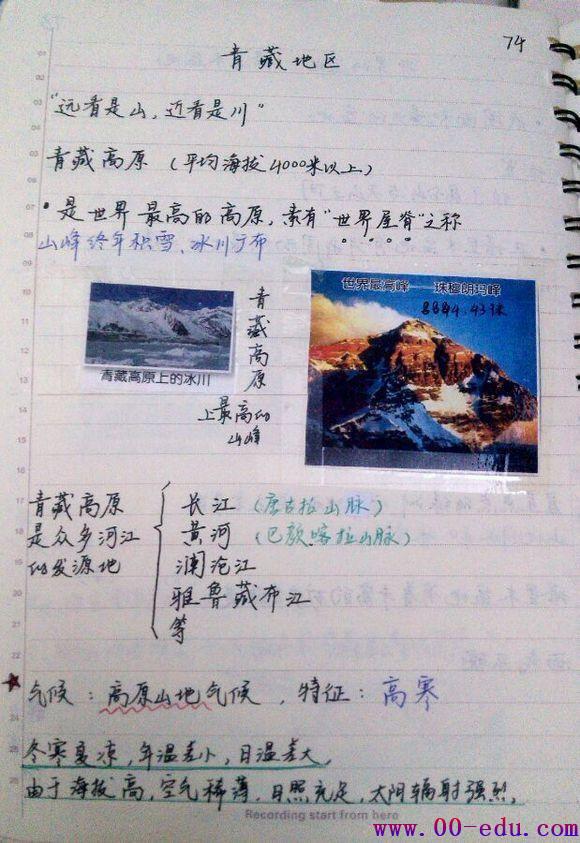 74
青藏地区
"远看是山，近看是川"
青藏高原（平均海拔4000米以上）
·是世界最高的高原，素有"世界屋脊"之称
山峰终年积雪、冰川广布
青藏高原上的冰川
青藏高原
上最高的
山峰
世界最高峰——珠穆朗玛峰
8844.43米
青藏高原
是众多河江
的发源地
长江（唐古拉山脉）
黄河（巴颜喀拉山脉）
澜沧江
雅鲁藏布江
等
气候：高原山地气候，特征：高寒
冬寒夏凉，年温差小，日温差大，
由于海拔高，空气稀薄，日照充足，太阳辐射强烈。
Recording start from here
www.00-edu.com